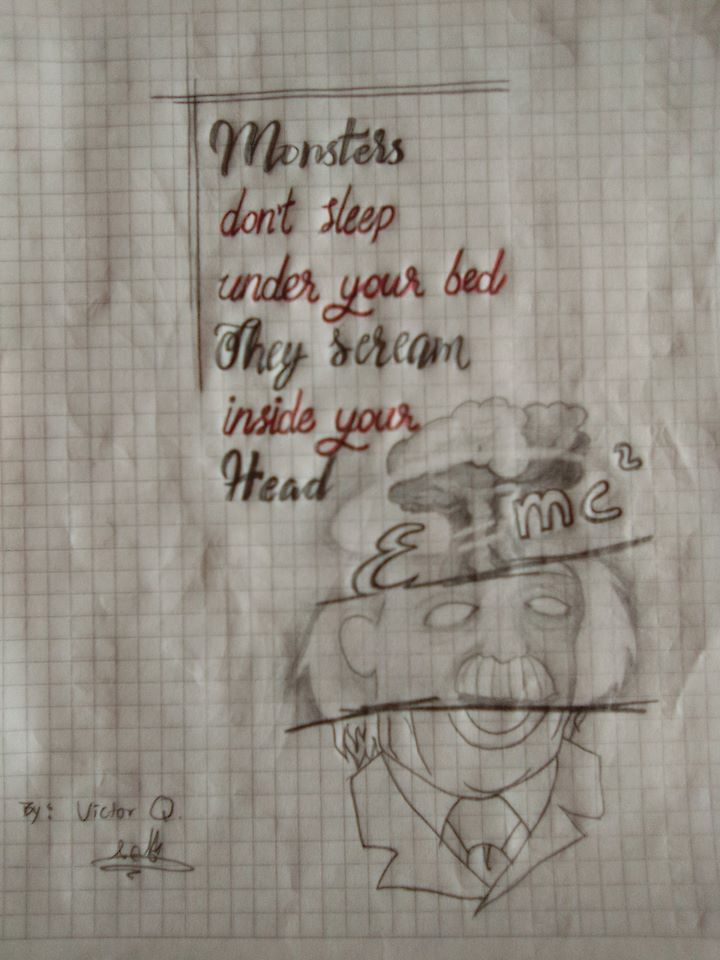 Monsters
don't sleep
under your bed
They scream
inside your
Head
E = mc²
By: Victor Q.